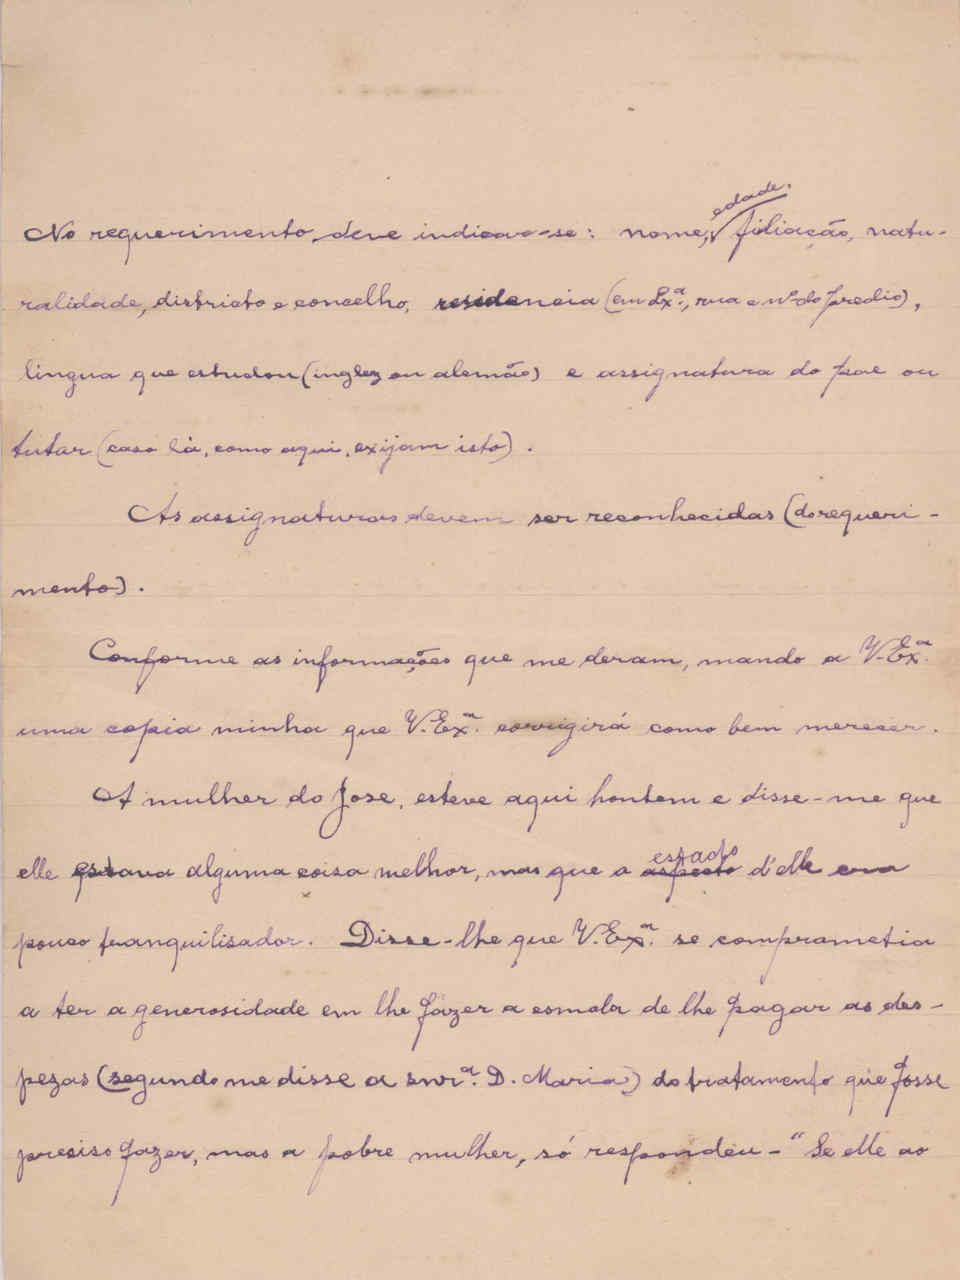 No requerimento deve indicar-se: nome, edade, filiação, natu-
ralidade, districto e concelho, residencia (em Lxª., rua e nº do predio),
lingua que estudou (inglez ou alemão) e assignatura do pae ou
tutor (caso lá, como aqui, exijam isto).
As assignaturas devem ser reconhecidas (do requeri-
mento).
Conforme as informações que me deram, mando a V. Exª.
uma copia minha que V. Exª. corrigirá como bem merecer.
A mulher do Jose, esteve aqui hontem e disse-me que
elle estava alguma coisa melhor, mas que o aspecto estado d'elle era
pouco tranquilisador. Disse-lhe que V. Exª. se comprometia
a ter a generosidade em lhe fazer a esmola de lhe pagar as des-
pezas (segundo me disse a snrª. D. Maria) do tratamento que fosse
presiso fazer, mas a pobre mulher, só respondeu - "Se elle ao